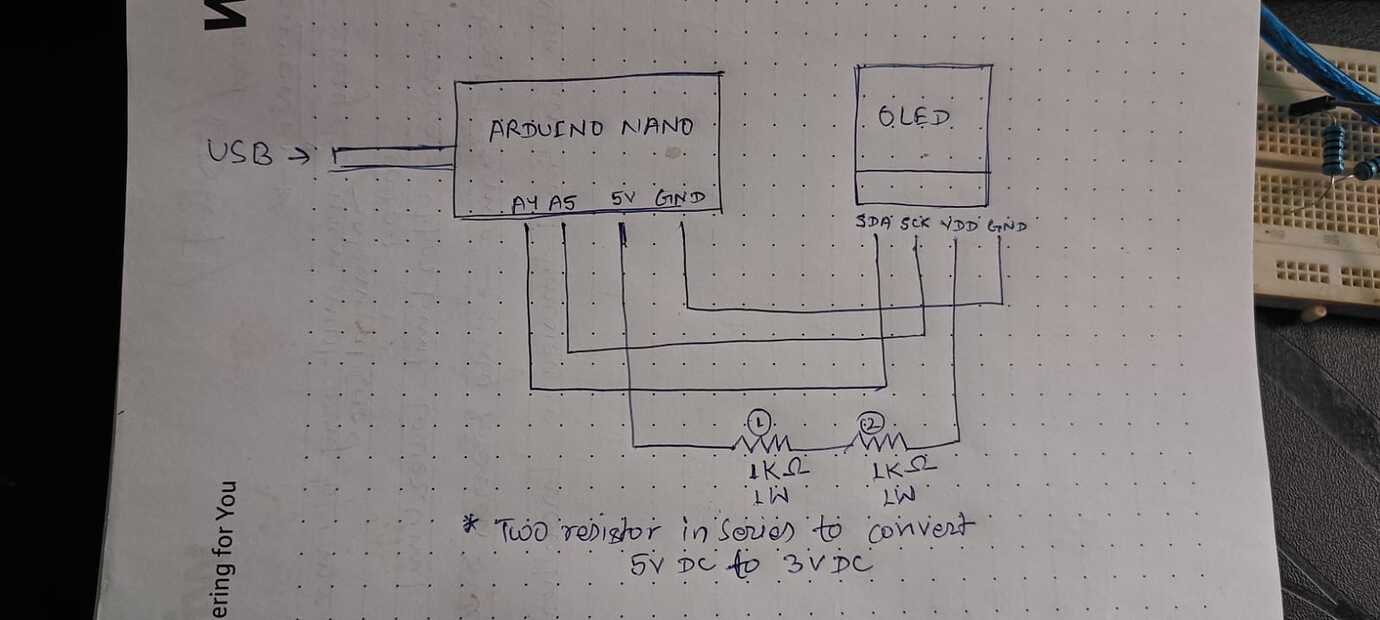 USB →
ARDUINO NANO
A4 A5 5V GND
OLED
SDA SCK VDD GND
1 2
1KΩ 1KΩ
1W 1W
* Two resistor in series to convert
5V DC to 3V DC
ering for You